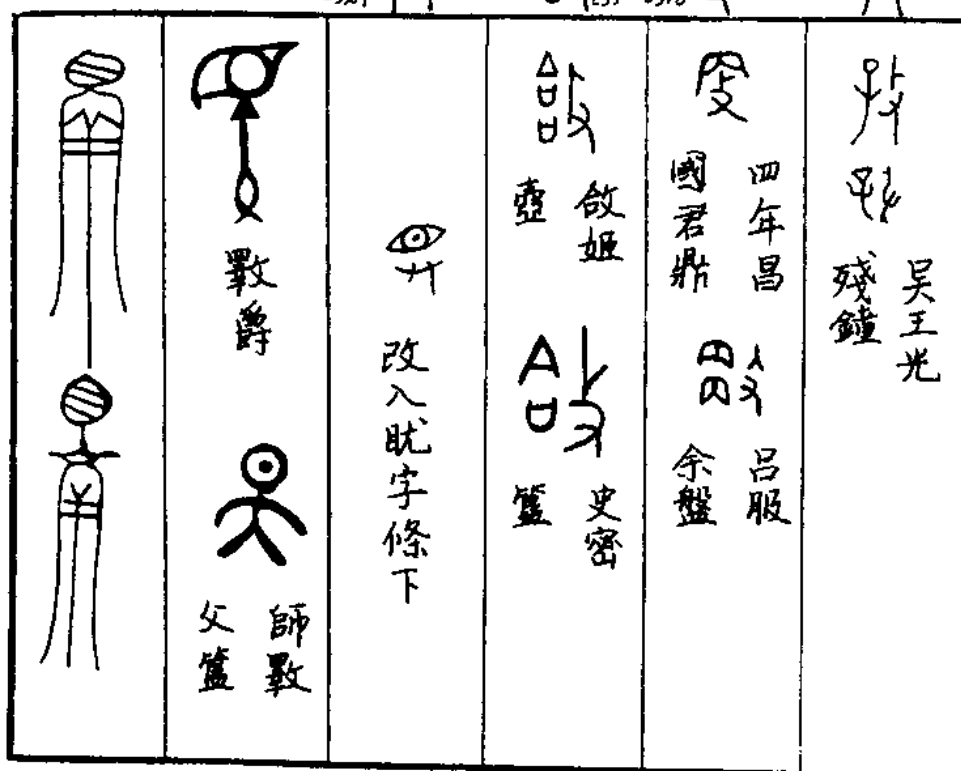 吴王光
殘鐘
四年昌
國君鼎
呂服
余盤
敆姬
壺
史密
簋
改入字條下
斁爵
師斁
父簋